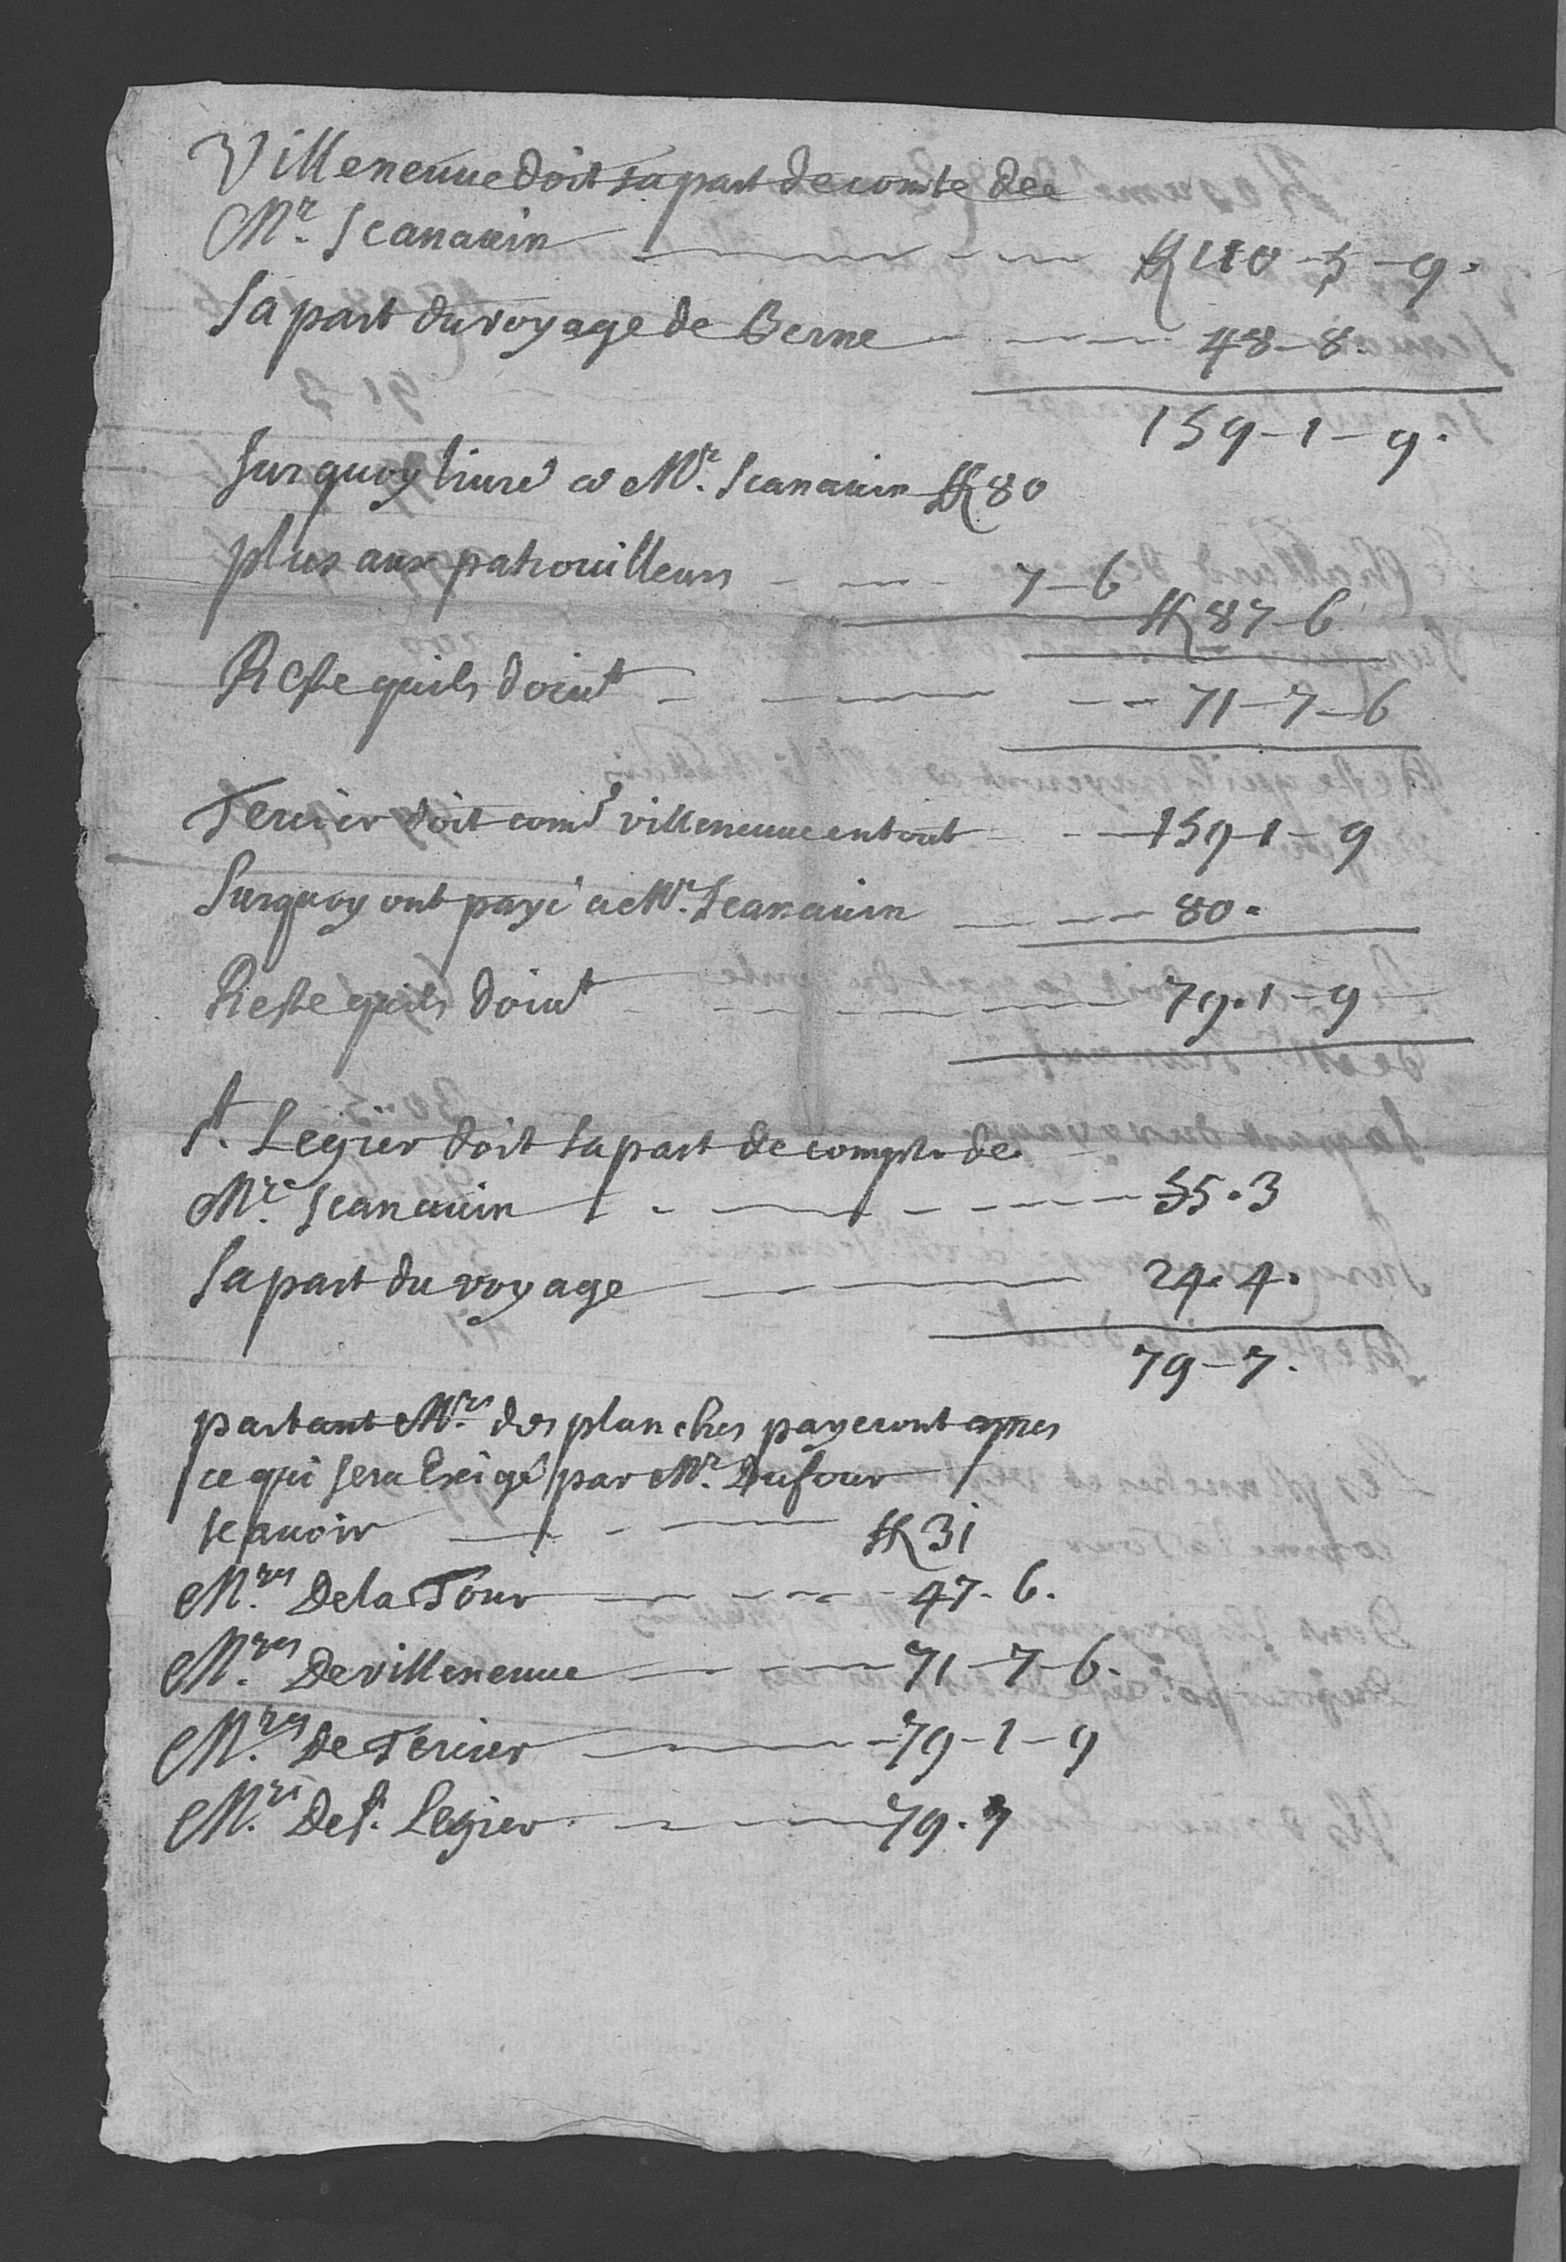 Villeneuue doit sa part de comte de
Mr. Scanauin ff 110 - 5 - 9.
Sa part du voyage de Berne 48 - 8.
159 - 1 - 9.
Surquoy liuré a Mr. Scanauin ff 80
plus aux patrouilleurs 7 - 6
ff 87 - 6
Reste quils doiut 71 - 7 - 6
Tercier doit come villeneuue entout 159 - 1 - 9
Surquoy ont payé a Mr. Scanauin 80.
Reste quils doiut 79. 1 - 9
St. Legier doit sa part de compte de
Mr. Scanauin 55. 3
Sa part du voyage 24. 4.
79 - 7.
partant Mrs. des planches payeront apres
ce qui sera Exigé par Mr. Dufour
scauoir ff 31
Mrs. De la Tour 47. 6.
Mrs. De villeneuue 71 - 7 - 6.
Mrs. De Tercier 79 - 1 - 9
Mrs. De St. Legier 79. 7